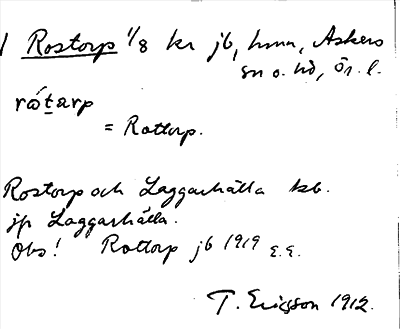 Rostorp 1/8 kr jb, hmn, Askers
sn o. hd, Ör. l.
rótarp
= Rottorp.
Rostorp och Laggarhälla kb.
jp Laggarhälla.
Obs! Rottorp jb 1919 E.E.
T. Ericsson 1912.